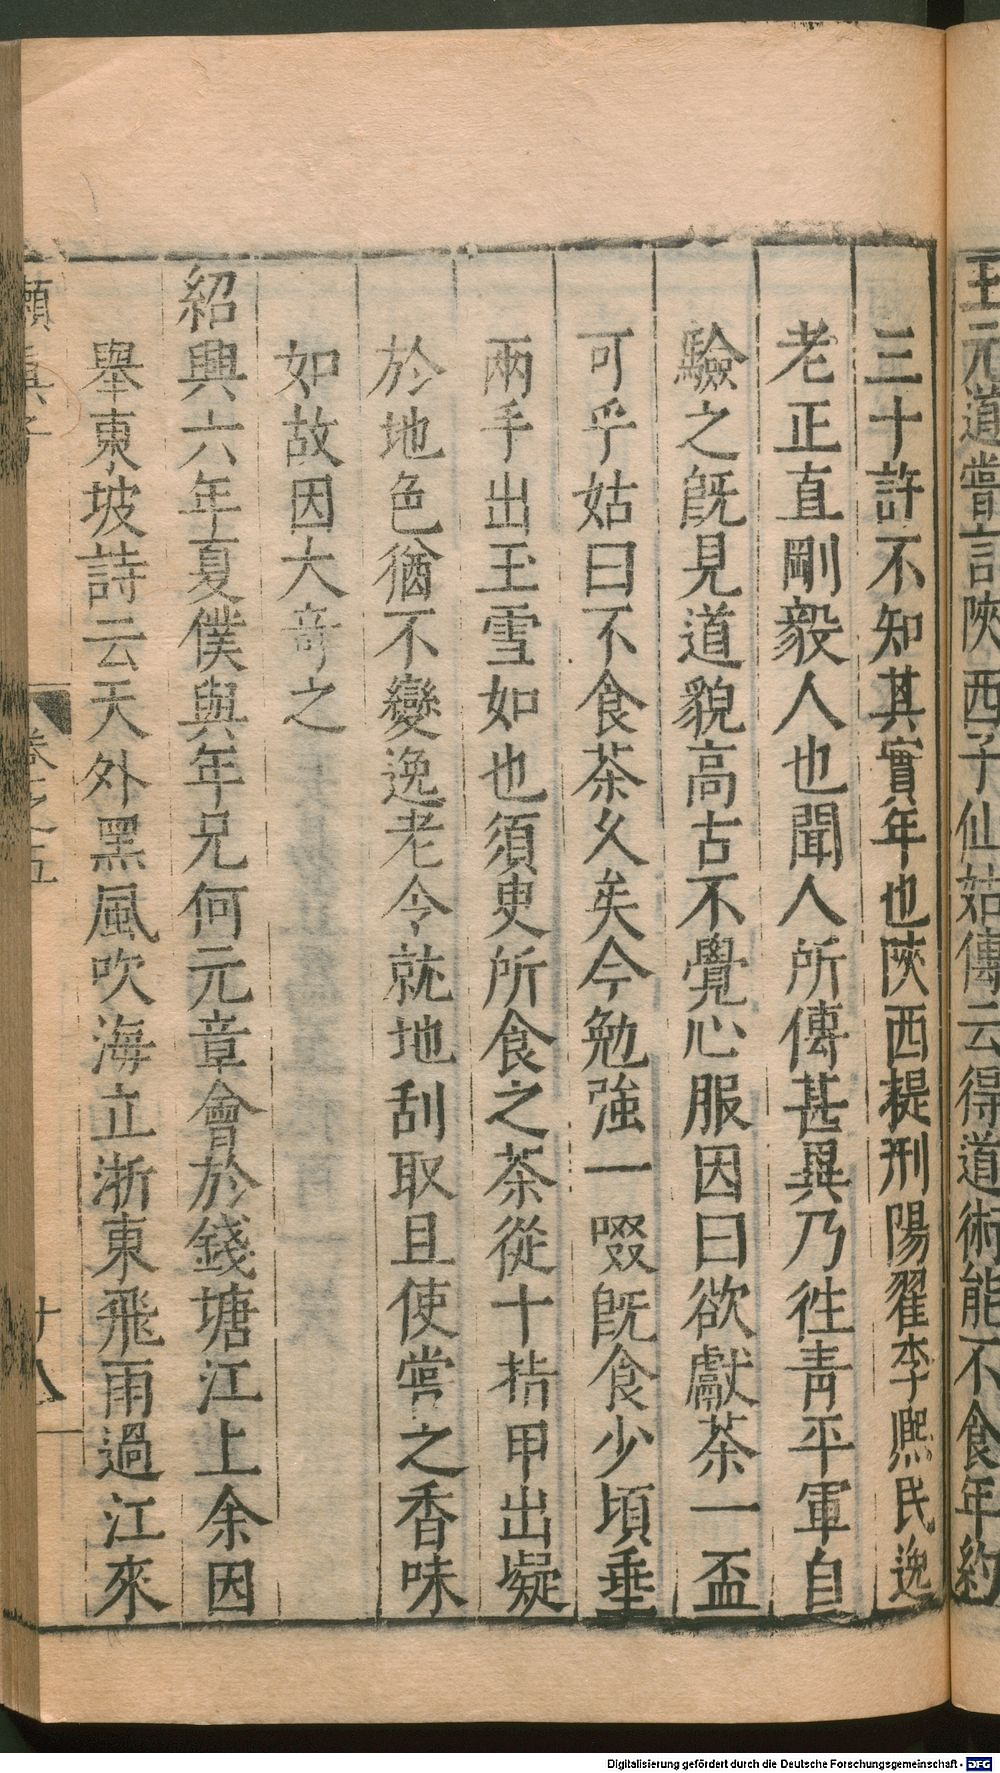 王元道嘗言陝西子仙姑傳云得道術能不食年約
三十許不知其實年也陝西提刑陽翟李熈民逸
老正直剛毅人也聞人所傳甚異乃徃青平軍自
驗之旣見道貌高古不覺心服因曰欲獻茶一盃
可乎姑曰不食茶久矣今勉強一啜旣食少頃垂
兩手出玉雪如也須臾所食之茶從十指甲出凝
於地色猶不變逸老令就地刮取且使嘗之香味
如故因大奇之
紹興六年夏僕與年兄何元章會於錢塘江上余因
舉東坡詩云天外黑風吹海立浙東飛雨過江來
懶真子
卷之五
十八
Digitalisierung gefördert durch die Deutsche Forschungsgemeinschaft - DFG